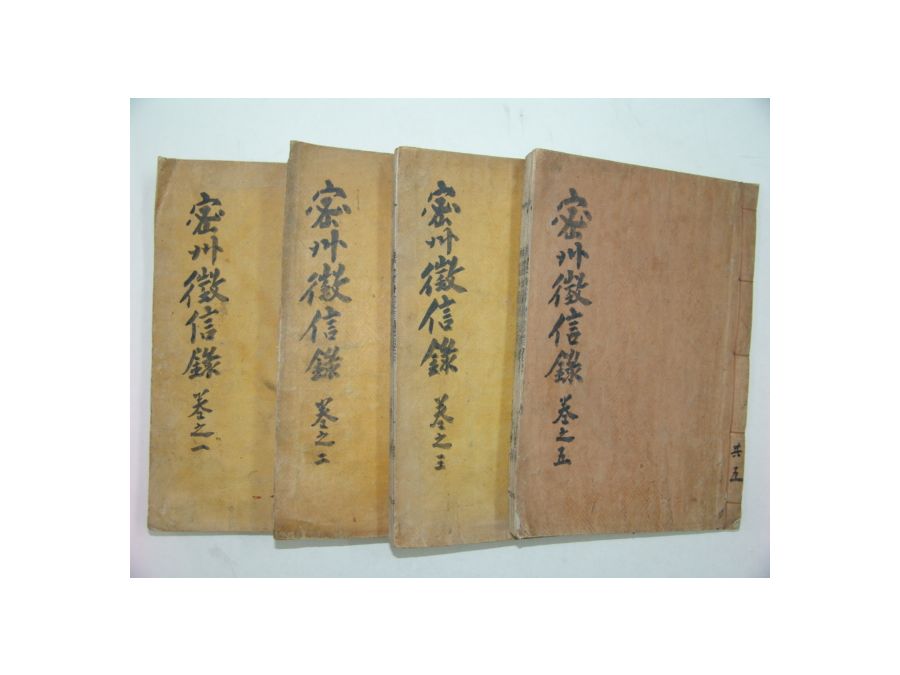 密州徵信錄 卷之一
密州徵信錄 卷之二
密州徵信錄 卷之三
密州徵信錄 卷之五
共五